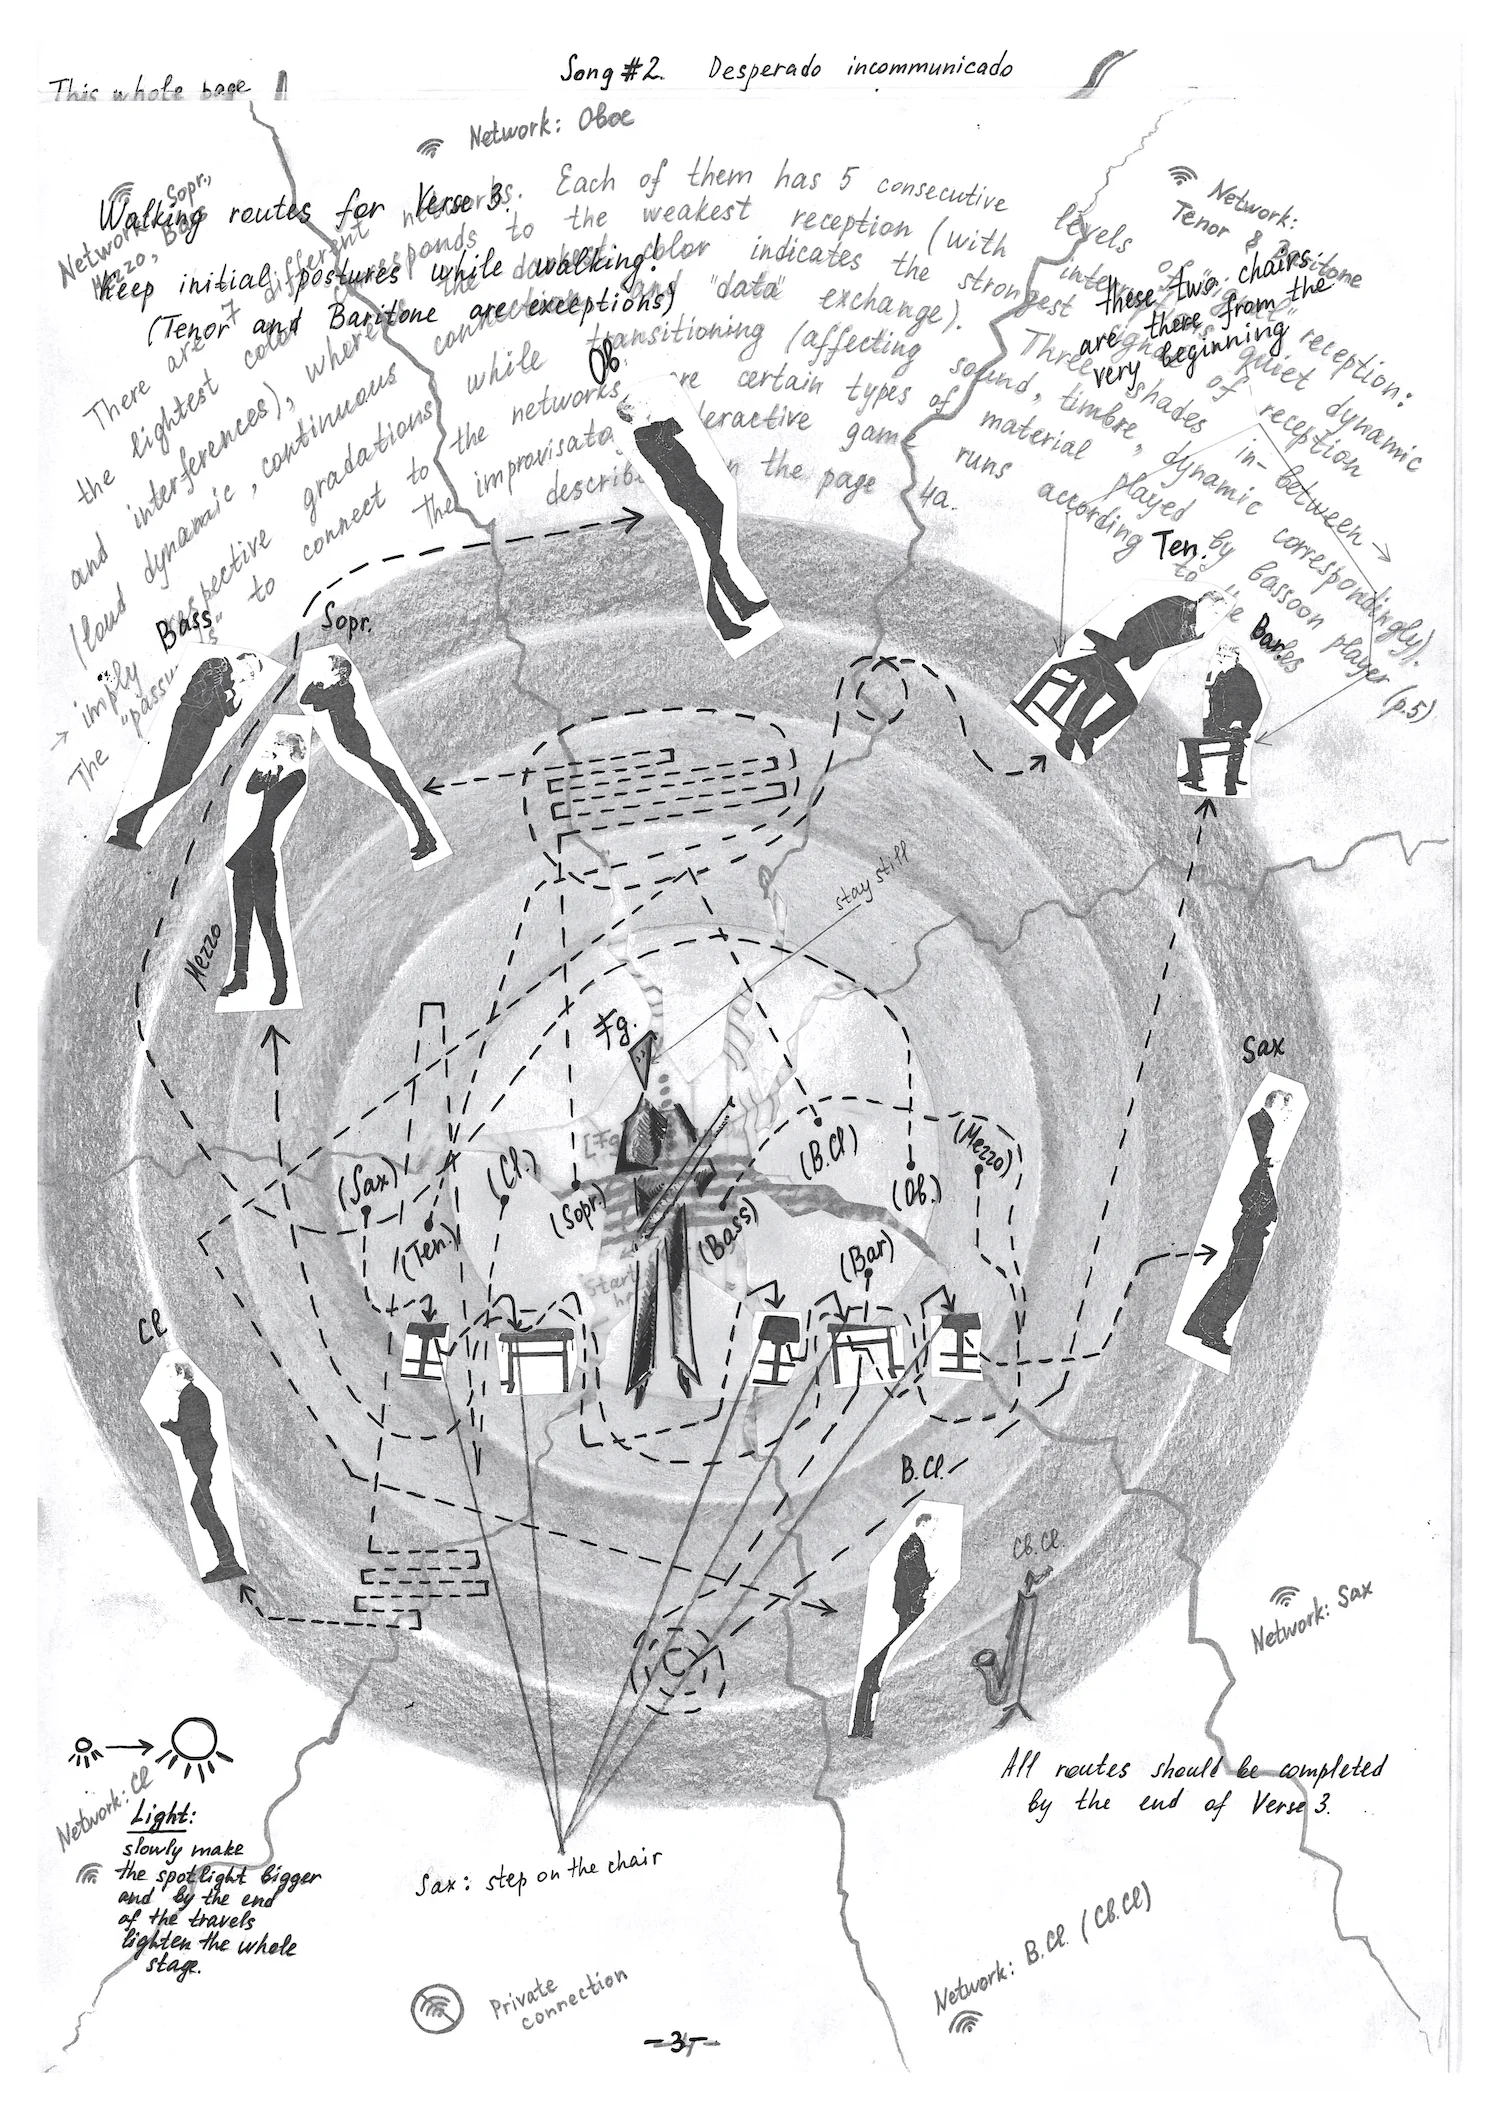 Song #2. Desperado incommunicado
This whole page
Network: Oboe
Network: Sopr.,
Mezzo, Bass
Network:
Tenor & Baritone
Walking routes for Verse 3.
Keep initial postures while walking!
(Tenor and Baritone are exceptions)
these two chairs
are there from the
very beginning
There are 7 different networks. Each of them has 5 consecutive levels of
the lightest color corresponds to the weakest reception (with
and interferences), where the color indicates the strongest reception:
(loud dynamic, continuous connection and "data" exchange). Three shades of quiet dynamic
imply respective gradations while transitioning (affecting sound, timbre, dynamic correspondingly).
The to connect to the networks are certain types of material played by bassoon player (p.5)
The improvisatory interactive game runs according to the
described on the page 4a.
in-between →
reception
Ob.
Ten.
Bar.
Bass
Sopr.
Mezzo
stay still
Fg.
Sax
(Sax)
(Ten.)
(Cl.)
(Sopr.)
(Bass)
(B.Cl)
(Ob.)
(Mezzo)
(Bar)
[Fg
Start
Cl.
B.Cl.
Cb.Cl.
Network: Sax
Network: Cl
Light:
slowly make
the spotlight bigger
and by the end
of the travels
lighten the whole
stage.
All routes should be completed
by the end of Verse 3.
Sax: step on the chair
Network: B.Cl. (Cb.Cl)
Private
connection